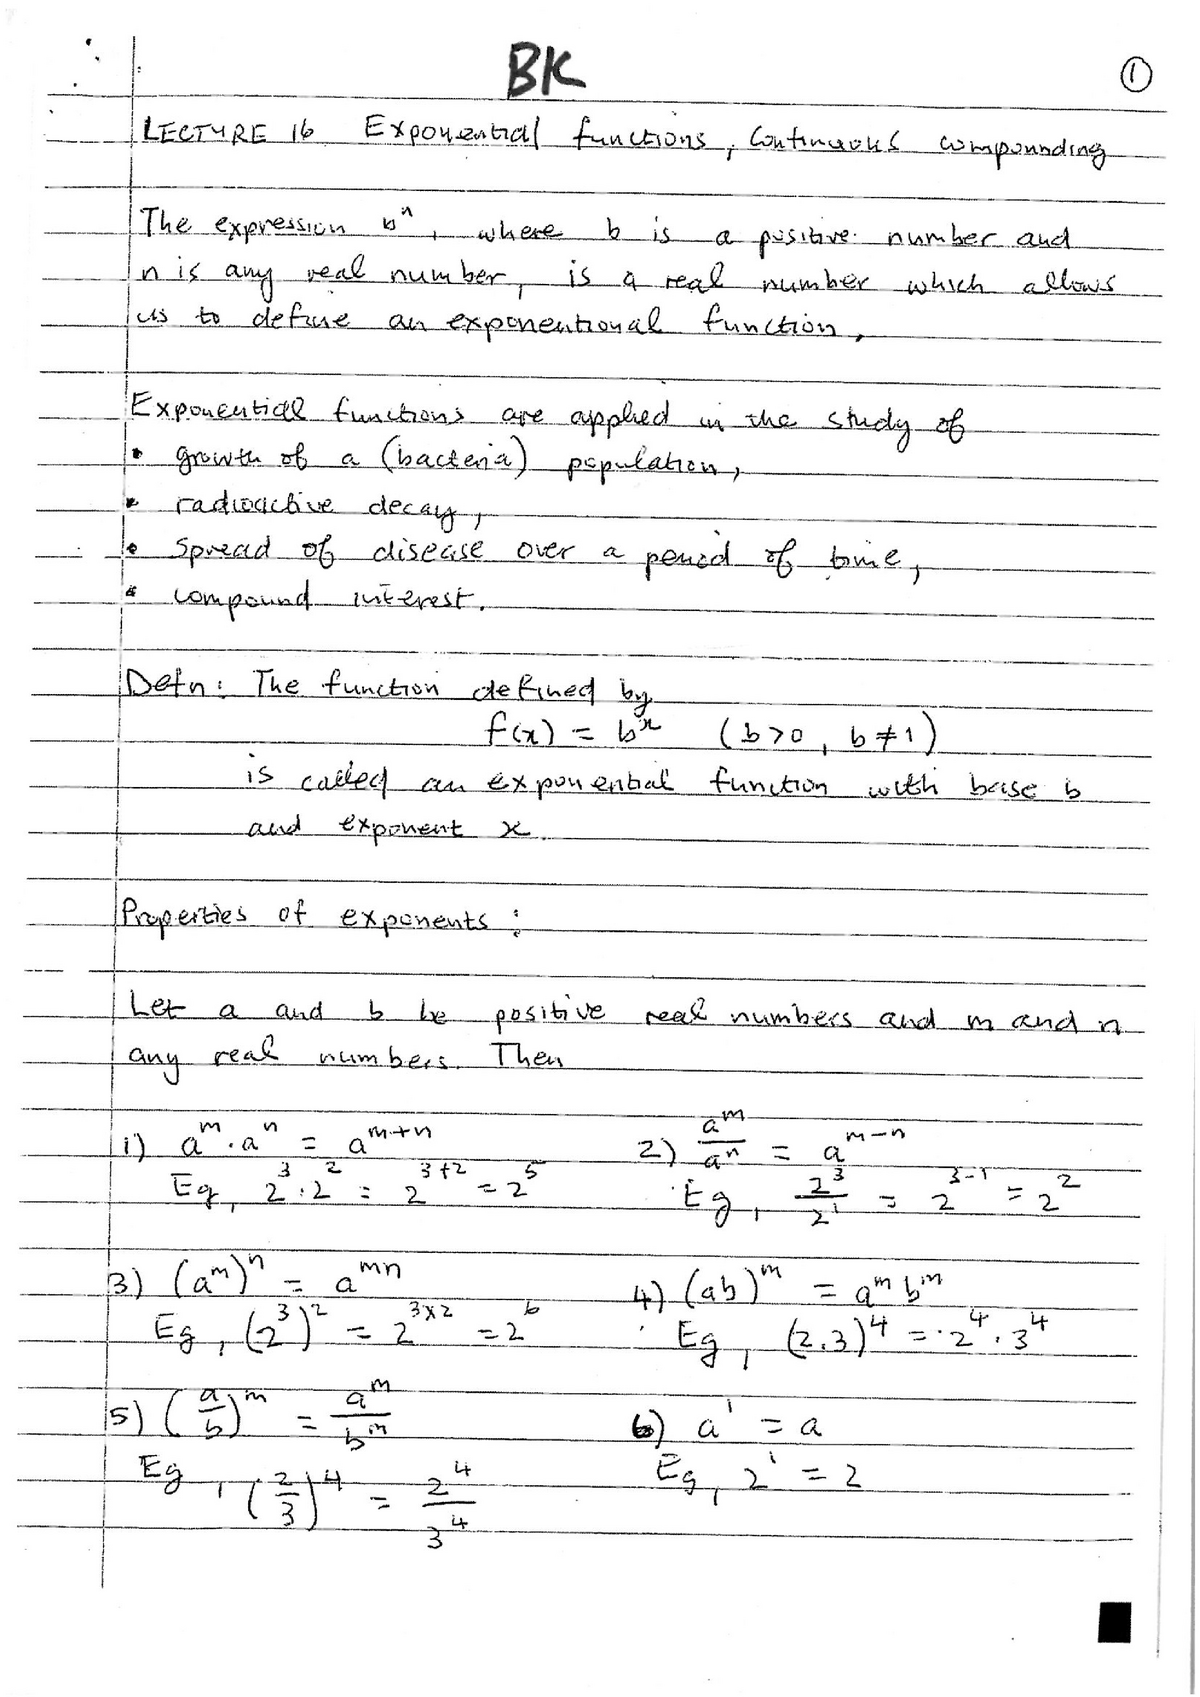 BK
①
LECTURE 16 Exponential functions, Continuous compounding
The expression bⁿ, where b is a positive number and
n is any real number, is a real number which allows
us to define an exponentional function,
Exponential functions are applied in the study of
• growth of a (bacteria) population,
• radioactive decay,
• spread of disease over a period of time,
• compound interest.
Defn: The function defined by
f(x) = bˣ (b>0, b≠1)
is called an exponential function with base b
and exponent x.
Properties of exponents:
Let a and b be positive real numbers and m and n
any real numbers. Then
1) aᵐ · aⁿ = aᵐ⁺ⁿ 2) aᵐ/aⁿ = aᵐ⁻ⁿ
Eg, 2³ · 2² = 2³⁺² = 2⁵ Eg, 2³/2¹ = 2³⁻¹ = 2²
3) (aᵐ)ⁿ = aᵐⁿ 4) (ab)ᵐ = aᵐ bᵐ
Eg, (2³)² = 2³ˣ² = 2⁶ Eg, (2.3)⁴ = 2⁴ · 3⁴
5) (a/b)ᵐ = aᵐ/bᵐ 6) a¹ = a
Eg, (2/3)⁴ = 2⁴/3⁴ Eg, 2¹ = 2